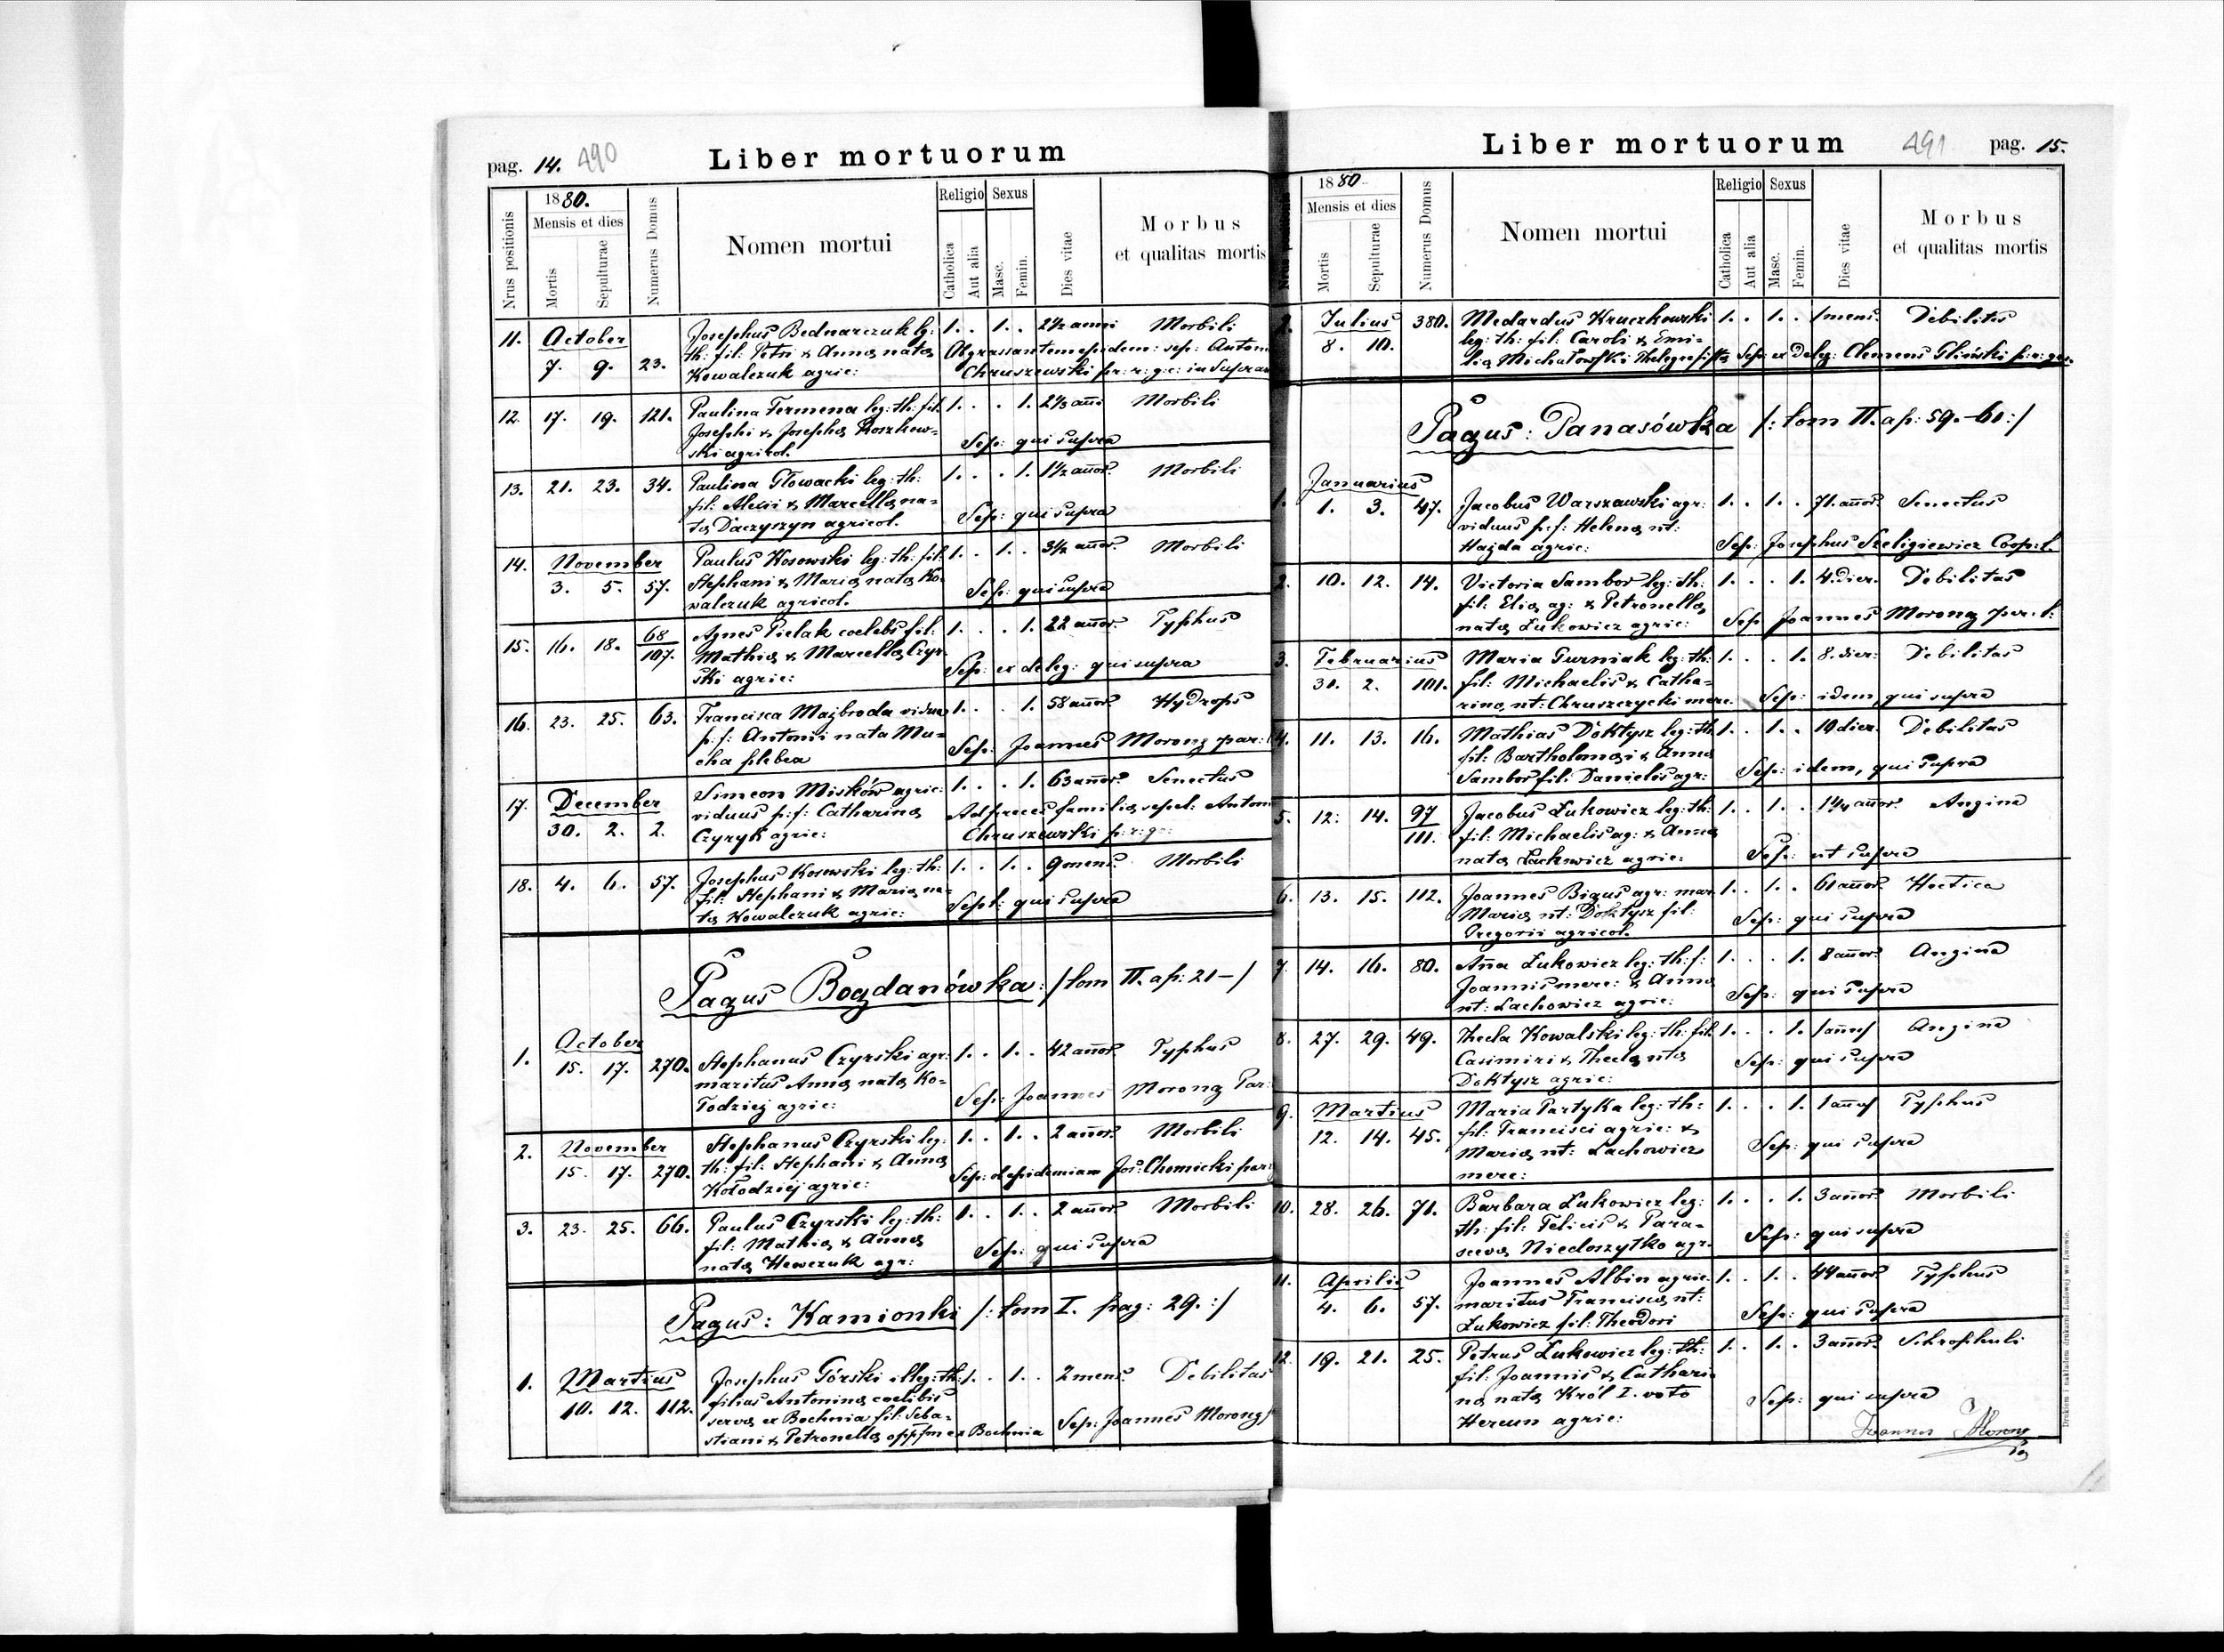 pag. 14. 490
Liber mortuorum
Nrus positionis
1880.
Mensis et dies
Mortis
Sepulturae
Numerus Domus
Nomen mortui
Religio
Catholica
Aut alia
Sexus
Masc.
Femin.
Dies vitae
Morbus
et qualitas mortis
11. October 7. 9. 23. Josephus Bednarczuk lg: 1. . 1. . 2½ anni Morbili
th: fil: Petri & Annæ natæ Ob grassantem epidem: sep: Anton
Kowalczuk agric: Chruszewski pr: r: g: c: in Supra
12. 17. 19. 121. Paulina Fermena leg: th: fil. 1. . . 1. 2⅓ añi Morbili
Josephi & Josephæ Roszkow=
ski agricol. Sep: qui supra
13. 21. 23. 34. Paulina Głowacki leg: th: 1. . . 1. 1½ añor. Morbili
fil: Alexii & Marcellæ na=
tæ Daczyszyn agricol. Sep: qui supra
14. November 3. 5. 57. Paulus Kosowski leg: th: fil: 1. . 1. . 3½ añor. Morbili
Stephani & Mariæ natæ Ko=
walczuk agricol. Sep: qui supra
15. 16. 18. 68/107. Agnes Pielak coelebs fil: 1. . . 1. 22 añor. Typhus
Mathiæ & Marcellæ Czyr
ski agric: Sep: ex deleg: qui supra
16. 23. 25. 63. Francisca Majbroda vidua 1. . . 1. 58 añor. Hydrops
p: f: Antonii nata Mu=
cha plebea Sep: Joannes Morong par:
17. December 30. 2. 2. Simeon Misków agric: 1. . . 1. 63 añor. Senectus
viduus p: f: Catharinæ Ad preces familiæ sepel: Anton
Czyryk agric: Chruszewski p: r: g:
18. 4. 6. 57. Josephus Kosowski leg: th: 1. . 1. . 9 mens. Morbili
fil: Stephani & Mariæ na=
tæ Kowalczuk agric: Sept: qui supra
Pagus Bogdanówka: /tom II. ap: 21-/
1. October 15. 17. 270. Stephanus Czyrski agr: 1. . 1. . 42 añor. Typhus
maritus Annæ natæ Ko=
łodziej agric: Sep: Joannes Morong Par:
2. November 15. 17. 270. Stephanus Czyrski leg: 1. . 1. . 2 añor. Morbili
th: fil: Stephani & Annæ
Kołodziej agric: Sep: ob epidemiam Jos: Chomicki par:
3. 23. 25. 66. Paulus Czyrski lg: th: 1. . 1. . 2 añor. Morbili
fil: Mathiæ & Annæ
natæ Hewczuk agr: Sep: qui supra
Pagus: Kamionki /: tom I. pag: 29. :/
1. Martius 10. 12. 112. Josephus Górski illeg: th: 1. . 1. . 2 mens. Debilitas
filius Antoninæ coelibis
servæ ex Bochnia fil: Seba=
stiani & Petronellæ ex Bochnia Sep: Joannes Morong
Liber mortuorum
491 pag. 15.
Nrus positionis
1880
Mensis et dies
Mortis
Sepulturae
Numerus Domus
Nomen mortui
Religio
Catholica
Aut alia
Sexus
Masc.
Femin.
Dies vitae
Morbus
et qualitas mortis
2. Julius 8. 10. 380. Medardus Kruczkowski 1. . 1. . 1 mens. Debilitas
leg: th: fil: Caroli & Emi=
liæ Michałowski Sep: ex deleg: Clemens Gliński p: r: gr.
Pagus: Panasówka /: tom II. ap: 59.-60:/
1. Januarius 1. 3. 47. Jacobus Warszawski agr: 1. . 1. . 71. añor. Senectus
viduus p: f: Helenæ nt:
Hajda agric: Sep: Josephus Szeligiewicz Coop: l.
2. 10. 12. 14. Victoria Sambor leg: th: 1. . . 1. 4. dier. Debilitas
fil: Eliæ ag: & Petronellæ
natæ Łukowicz agric: Sep Joannes Morong par: l:
3. Februarius 31. 2. 101. Maria Purniak leg: th: 1. . . 1. 8. dier: Debilitas
fil: Michaelis & Catha=
rinæ nt: Chruszczycki merc. Sep: idem, qui supra
4. 11. 13. 16. Mathias Doktysz leg: th 1. . 1. . 19 dier. Debilitas
fil: Bartholomæi & Annæ
Sambor fil: Danielis agr: Sep: idem, qui supra
5. 12. 14. 97/111. Jacobus Łukowicz leg: th: 1. . 1. . 1¼ añor. Angina
fil: Michaelis ag: & Annæ
natæ Lachowicz agric: Sep: ut supra
6. 13. 15. 112. Joannes Bigus agr: mar 1. . 1. . 61 añor. Hectica
Mariæ nt: Doktysz fil:
Gregorii agricol. Sep: qui supra
7. 14. 16. 80. Aña Łukowicz leg: th: f: 1. . . 1. 8 añor. Angina
Joannis merc: & Annæ
nt: Lachowicz agric: Sep: qui supra
8. 27. 29. 49. Thecla Kowalski leg: th: fil. 1. . . 1. 1 añi Angina
Casimiri & Theclæ ntæ
Doktysz agric: Sep: qui supra
9. Martius 12. 14. 45. Maria Partyka leg: th: 1. . . 1. 1 añi Typhus
fil: Francisci agric: &
Mariæ nt: Lachowicz Sep: qui supra
merc:
10. 28. 26. 71. Barbara Łukowicz leg: 1. . . 1. 3 añor. Morbili
th: fil: Felicis & Para=
scevæ Niedoszytko agr. Sep: qui supra
11. Aprilis 4. 6. 57. Joannes Albin agric. 1. . 1. . 44 añor. Typhus
maritus Franciscæ nt:
Łukowicz fil: Theodori Sep: qui supra
12. 19. 21. 25. Petrus Łukowicz leg: th: 1. . 1. . 3 añor. Schrophuli
fil: Joannis & Cathari
næ natæ Król I. voto Sep: qui supra
Hercun agric:
Joannes Morong
Drukiem i nakładem drukarni Ludowej we Lwowie.